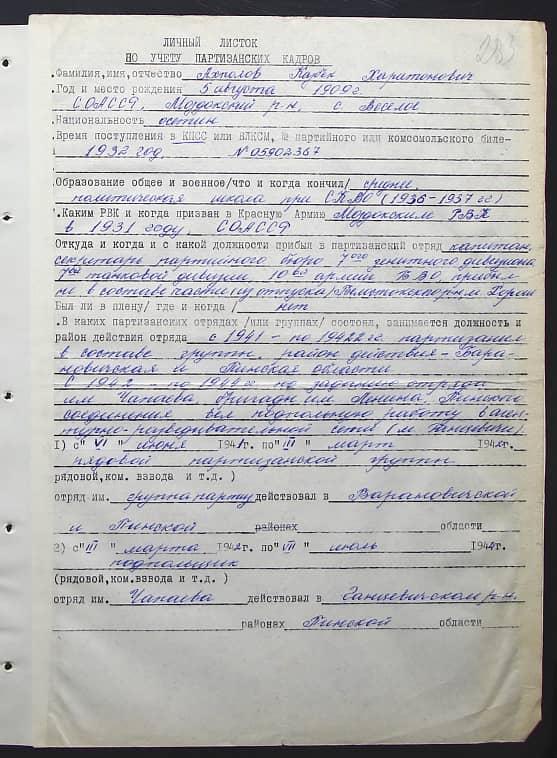 283
ЛИЧНЫЙ ЛИСТОК
ПО УЧЕТУ ПАРТИЗАНСКИХ КАДРОВ
.Фамилия,имя,отчество Ахполов Харитонович
.Год и место рождения 5 августа 1909г.
СОАССР, Моздокский р-н, с. Веселое
Национальность осетин
.Время поступления в КПСС или ВЛКСМ, № партийного или комсомольского биле-
1932 год, №05902367
.Образование общее и военное/что и когда кончил/ среднее,
политическая школа при СКВО (1936-1937 гг)
.Каким РВК и когда призван в Красную Армию Моздокским РВК
в 1931 году, СОАССР
Откуда и когда и с какой должности прибыл в партизанский отряд капитан,
секретарь партийного бюро 7ого зенитного дивизиона
7ой танковой дивизии 10ой армии БВО, прибыл
не в составе части из отпуска
Был ли в плену/ где и когда / нет
.В каких партизанских отрядах /или группах/ состоял, занимается должность и
район действия отряда с 1941 - по 1942 гг. партизанил
в составе группы, район действия - Бара-
новичская и Пинская области
С 1942 - по 1944 гг по заданию отряда
им Чапаева, бригады им. Ленина, Пинского
соединения вел подпольную работу в аген-
турно-разведывательной сети (м. Ганцевичи)
1) с" VI " июня 1941г. по" III " март 1942г.
рядовой партизанской группы
рядовой,ком. взвода и т.д. )
отряд им. группа партиз действовал в Барановичской
и Пинской районах области
2) с"III " марта 1942г. по" VII " июль 1944г.
подпольщик
(рядовой,ком.взвода и т.д. )
отряд им. Чапаева действовал в Ганцевичском р-н.
районах Пинской области